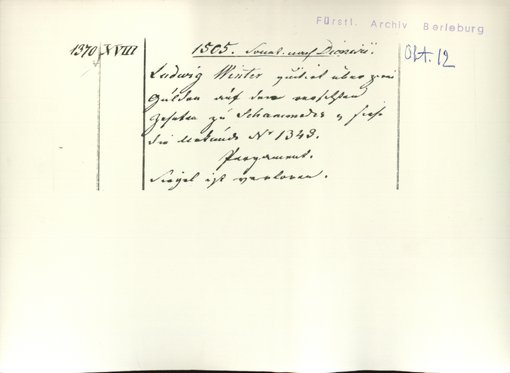 Fürstl. Archiv Berleburg
1370 XVIII 1505. Sonnt. nach Dionisii. Okt. 12
Ludwig Winter quitirt über zwei
Gulden auf den versetzten
Zehnten zu Schammeder, siehe
die Urkunde Nr 1343.
Pergament.
Siegel ist verloren.